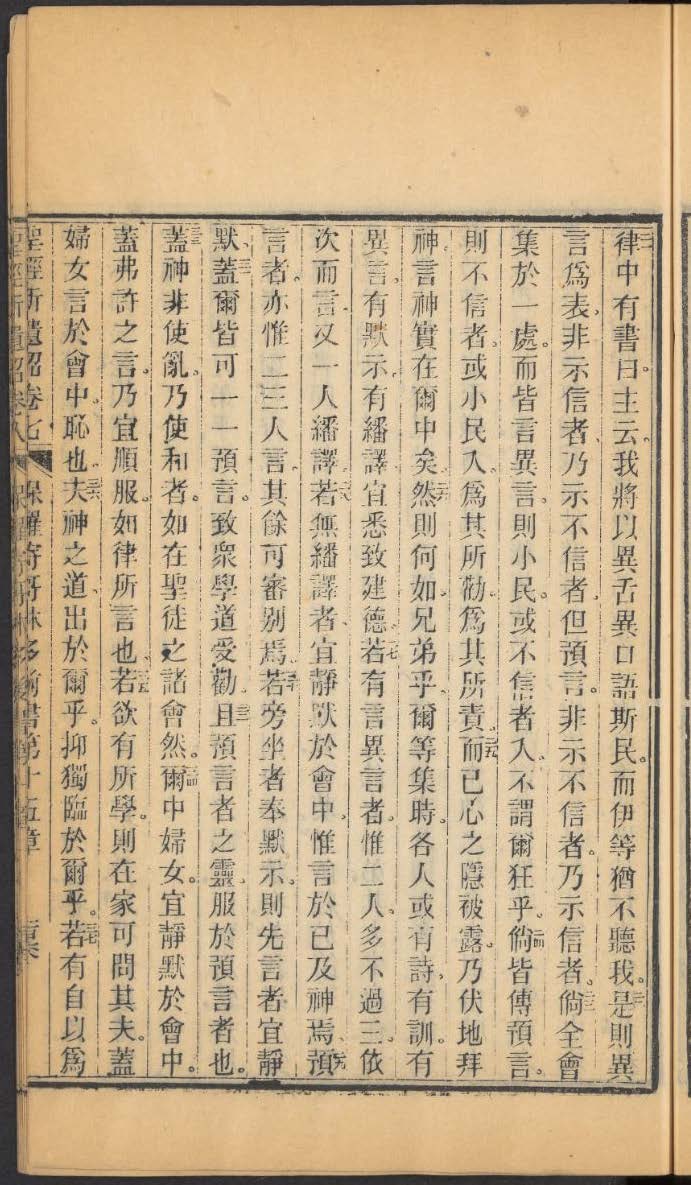 律中有書曰主云我將以異舌異口語斯民而伊等猶不聽我是則異
言爲表非示信者乃示不信者但預言非示不信者乃示信者倘全會
集於一處而皆言異言則小民或不信者入不謂爾狂乎倘皆傳預言
則不信者或小民入爲其所勸爲其所責而已心之隱被露乃伏地拜
神言神實在爾中矣然則何如兄弟乎爾等集時各人或有詩有訓有
異言有默示有繙譯宜悉致建德若有言異言者惟二人多不過三依
次而言又一人繙譯若無繙譯者宜靜默於會中惟言於已及神焉預
言者亦惟二三人言其餘可審別焉若旁坐者奉默示則先言者宜靜
默蓋爾皆可一一預言致衆學道受勸且預言者之靈服於預言者也
蓋神非使亂乃使和者如在聖徒之諸會然爾中婦女宜靜默於會中
蓋弗許之言乃宜順服如律所言也若欲有所學則在家可問其夫蓋
婦女言於會中恥也夫神之道出於爾乎抑獨臨於爾乎若有自以爲
聖經新遺詔卷七 保羅寄哥林多前書第十五章